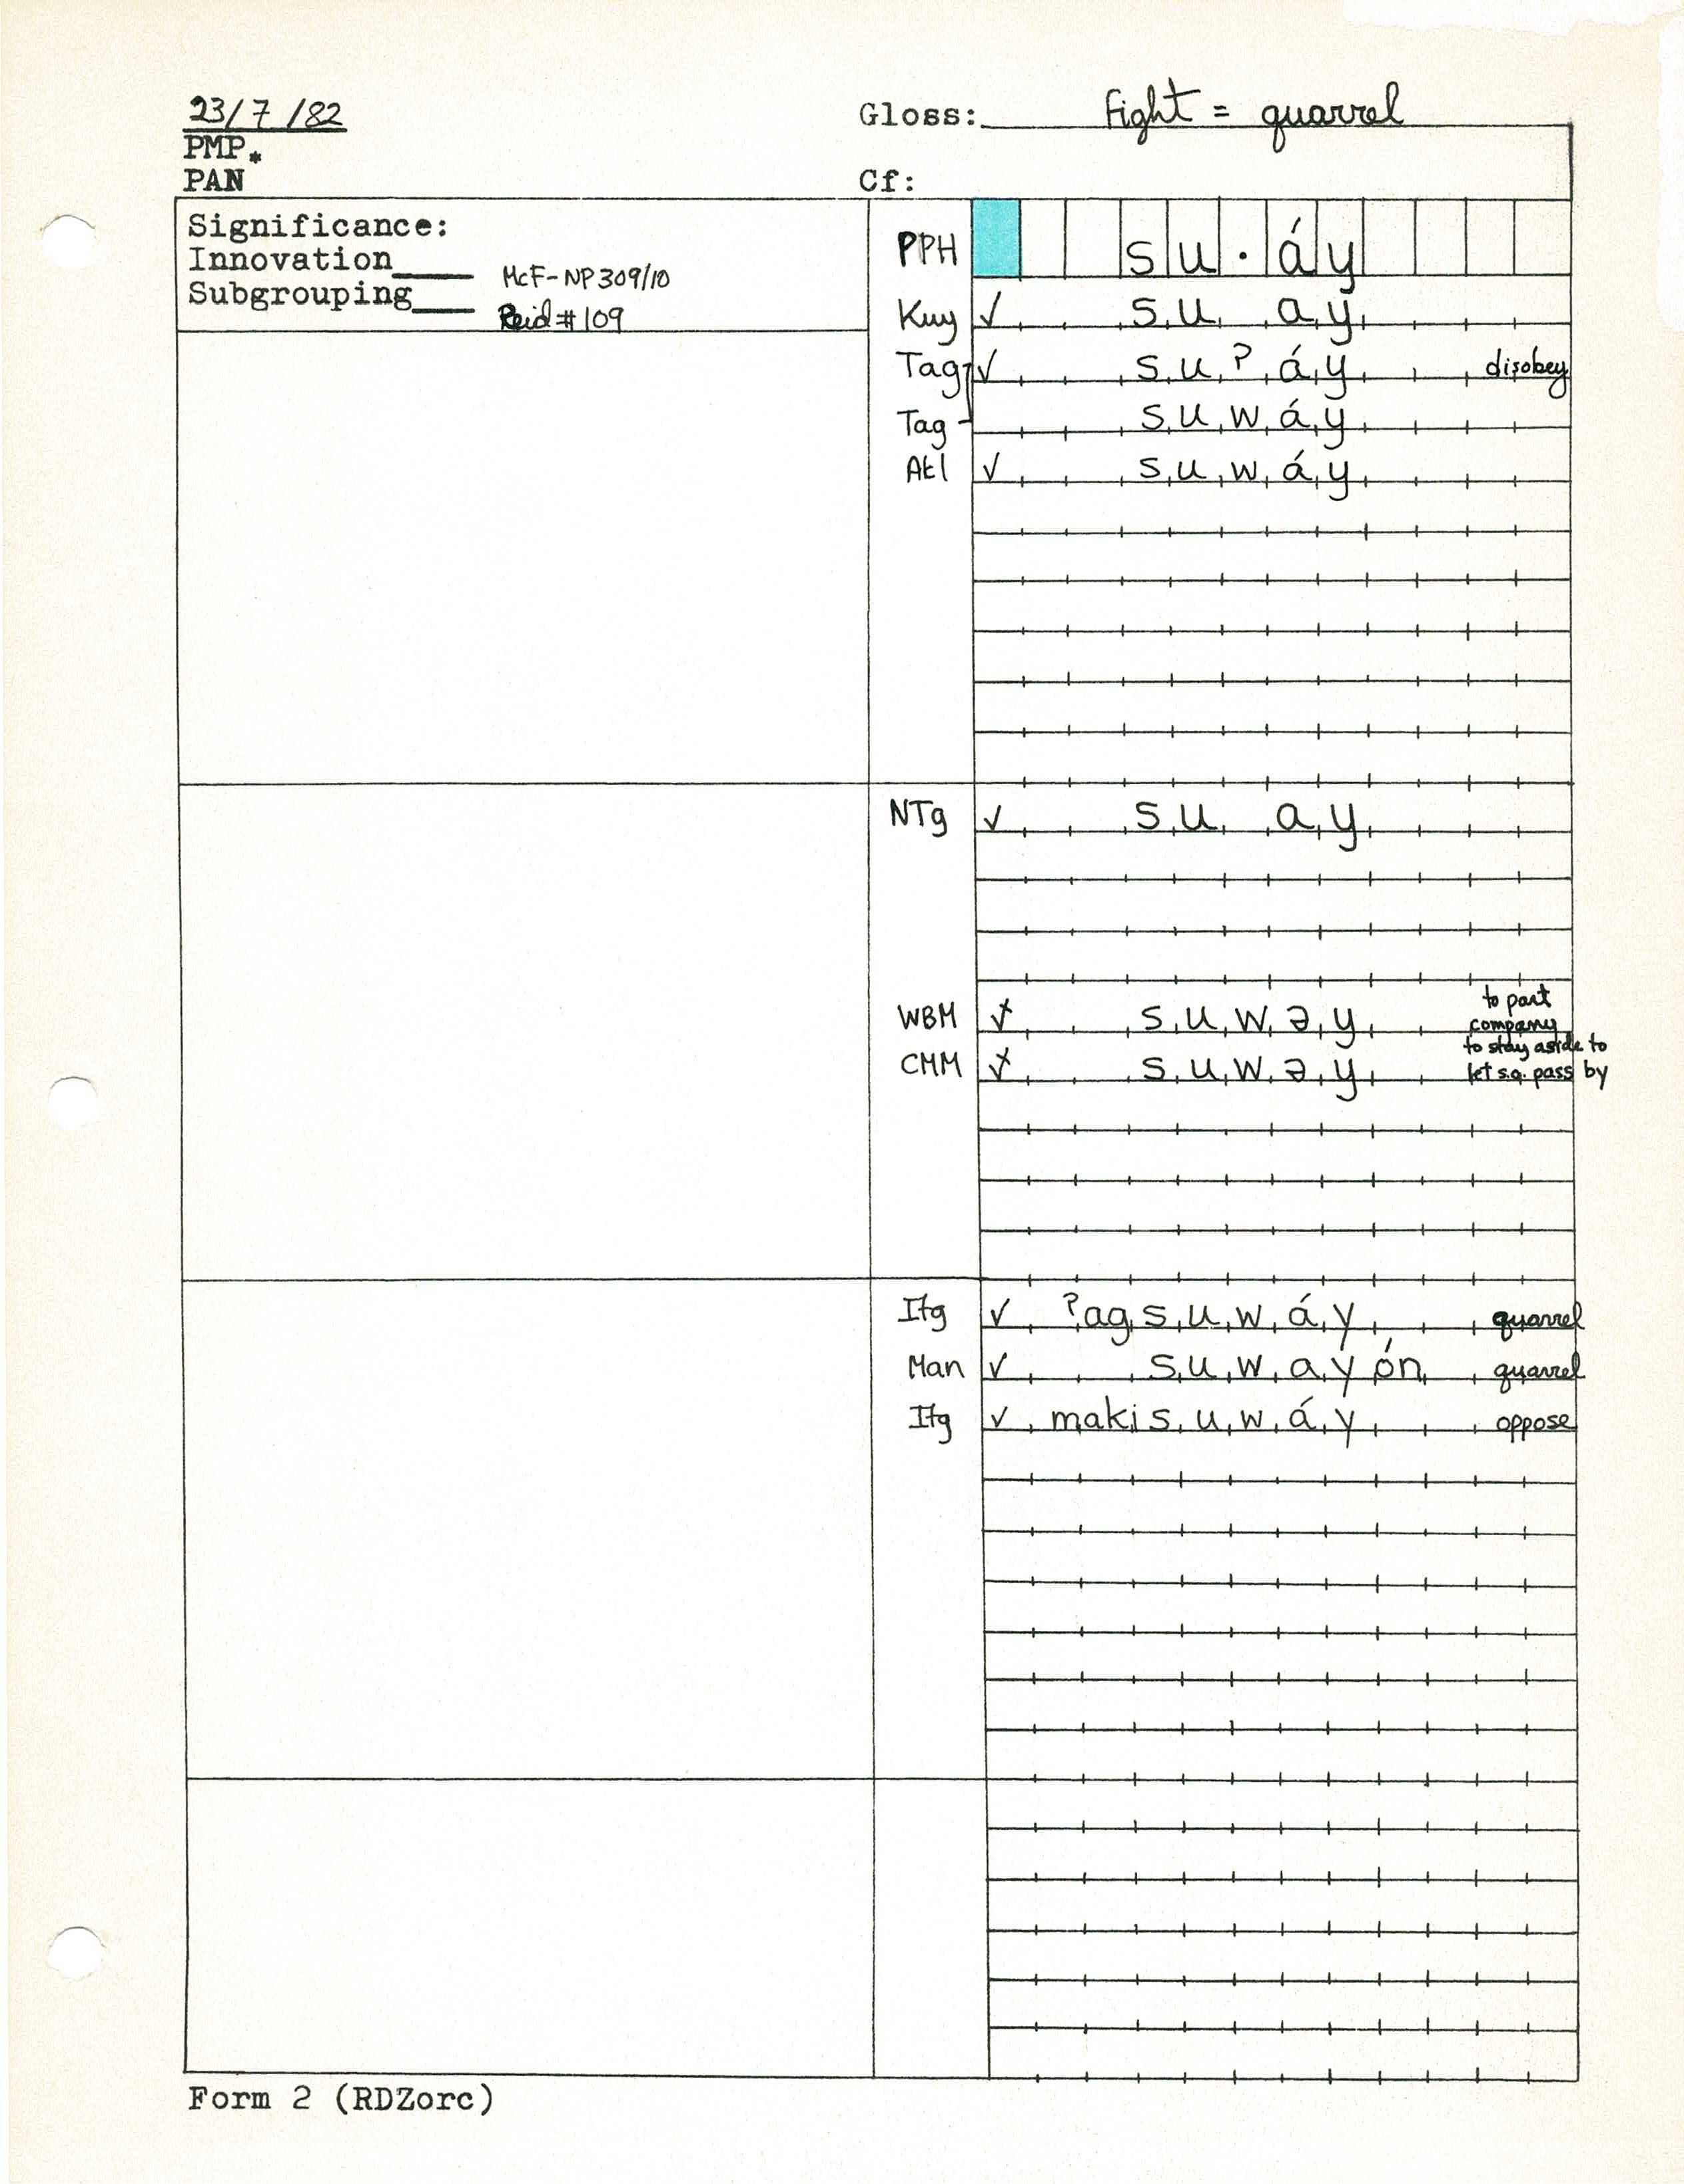 23/7/82
Gloss: Fight = quarrel
PMP*
PAN
Cf:
Significance:
Innovation____ McF-NP309/10
Subgrouping____ Reid #109
PPH su·áy
Kuy ✓ su ay
Tag ✓ suʔáy disobey
Tag suwáy
Akl ✓ suwáy
NTg ✓ su ay
WBM suwəy to part company
CMM suwəy to stay aside to let s.o. pass by
Itg ✓ ʔagsuwáy quarrel
Man ✓ suwayón quarrel
Itg ✓ makisuwáy oppose
Form 2 (RDZorc)